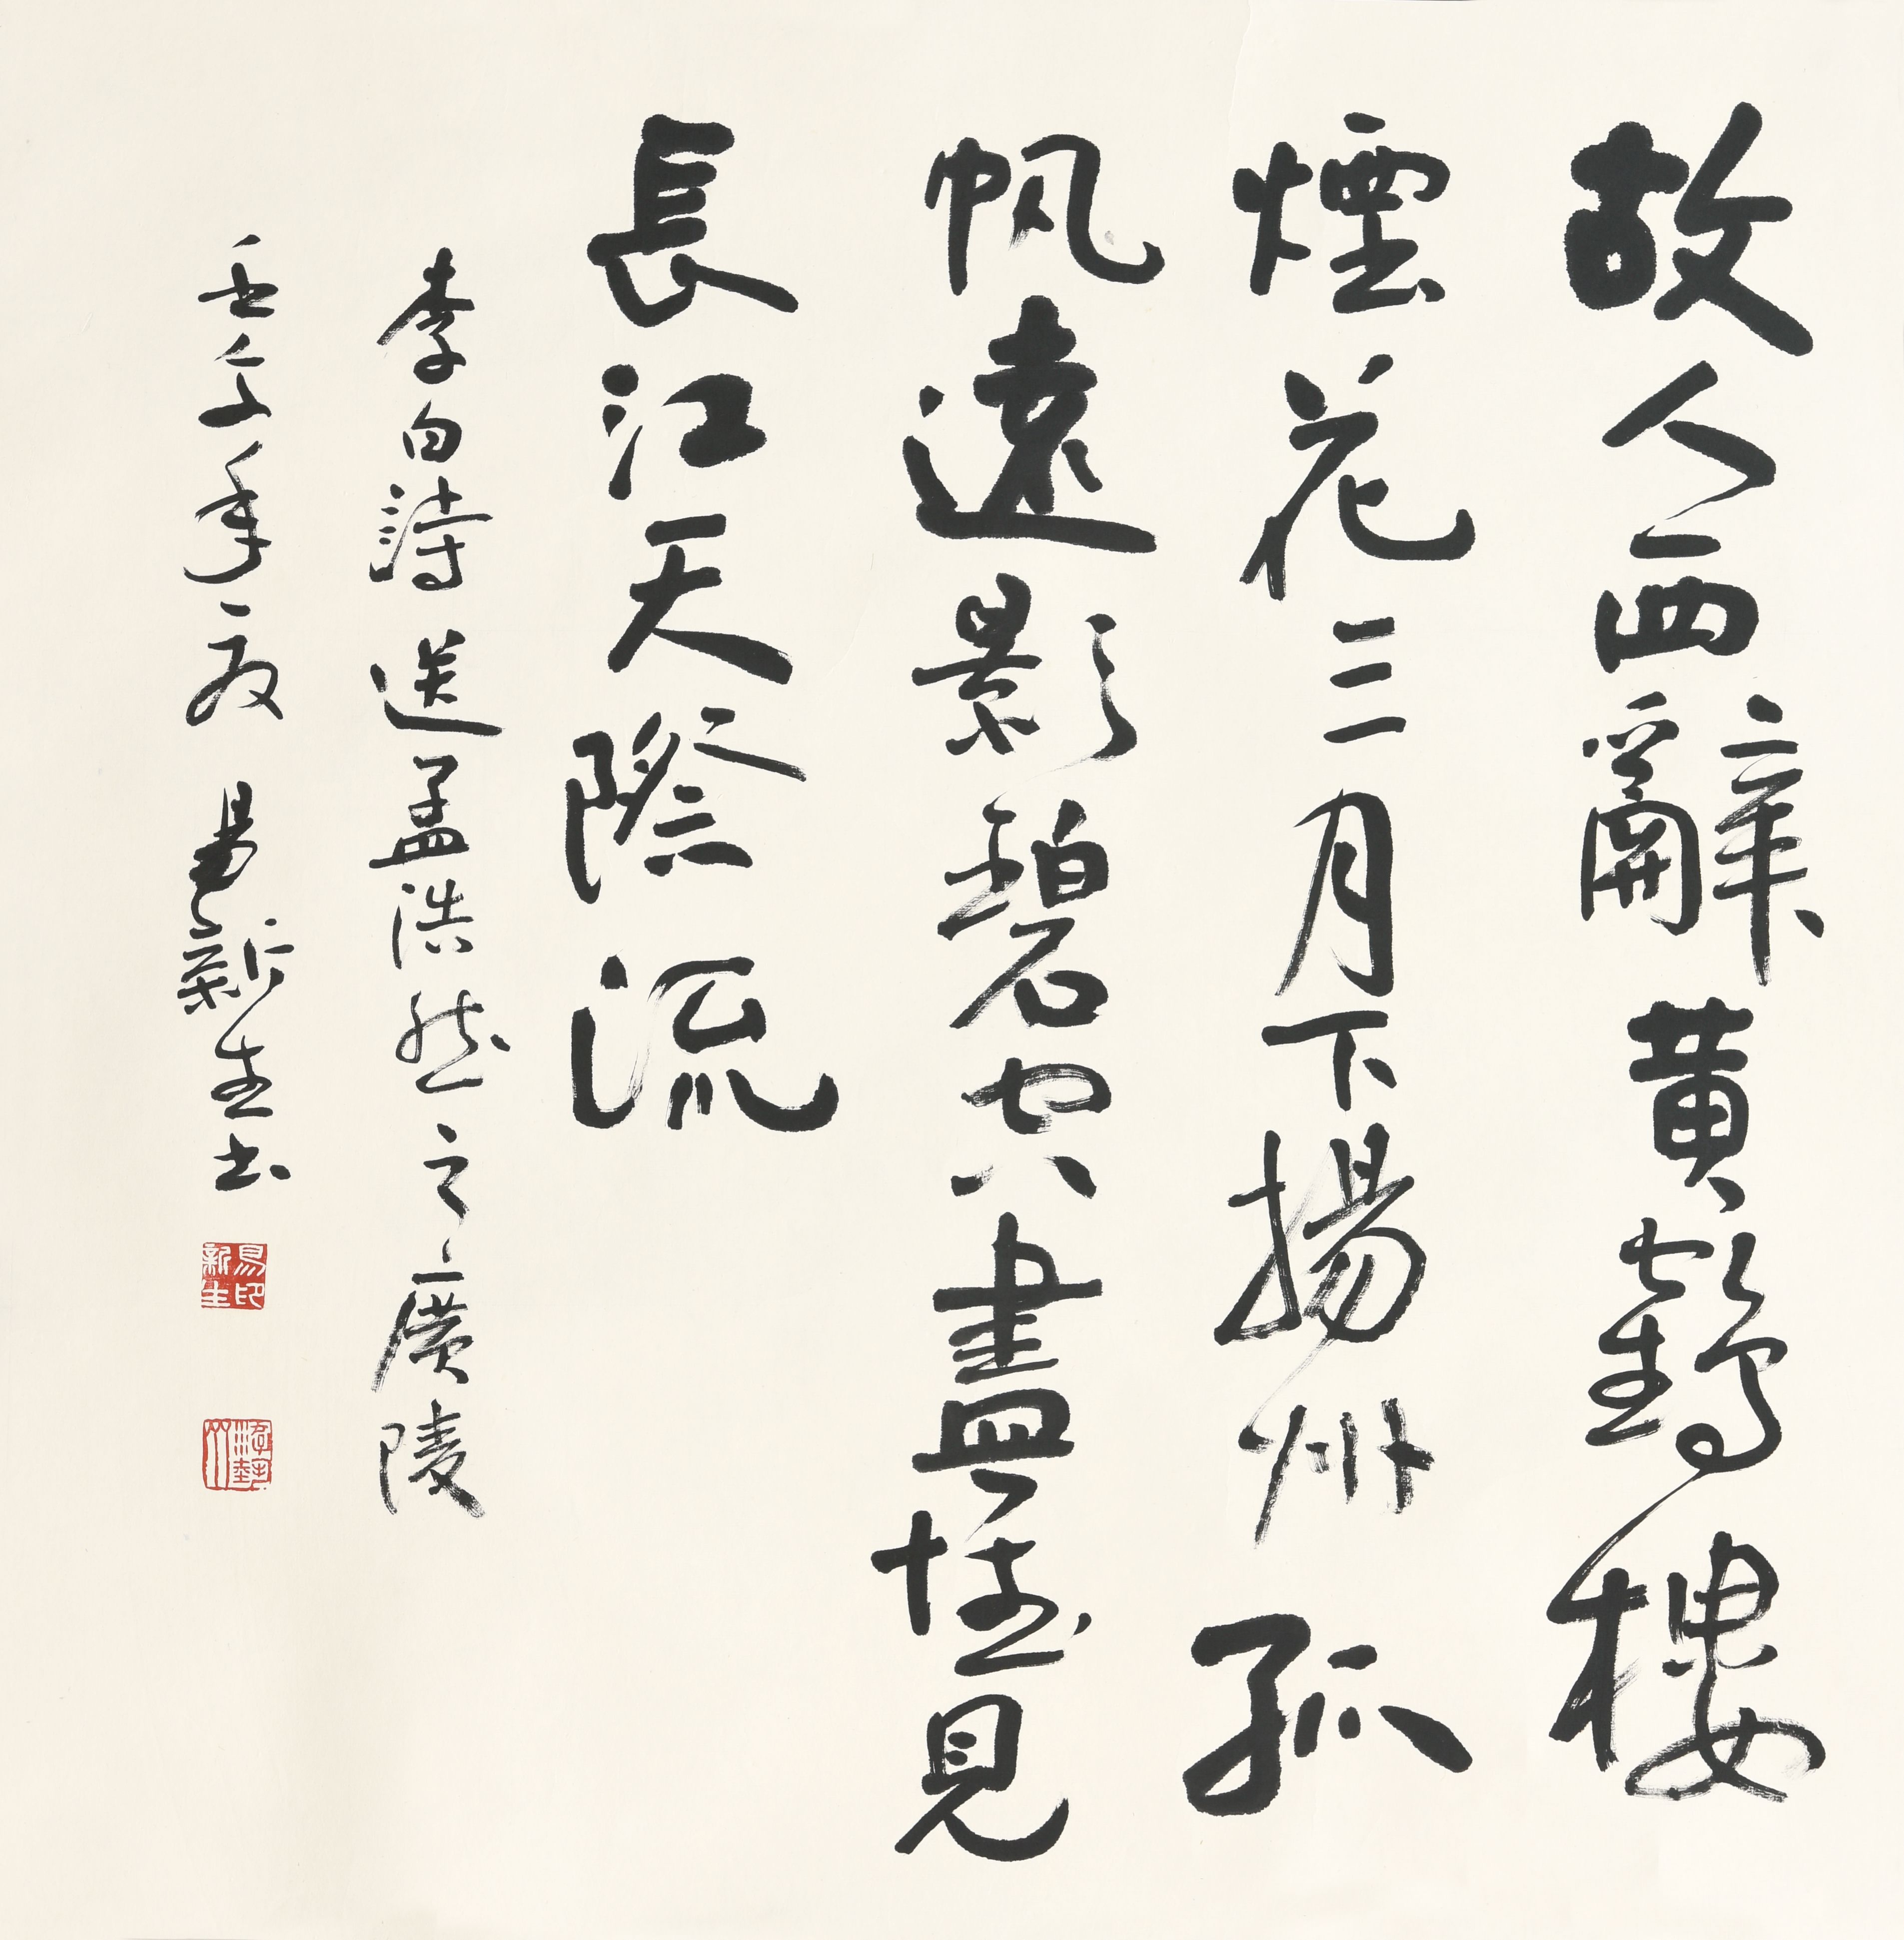 故人西辭黄鶴樓
煙花三月下揚州孤
帆遠影碧空盡惟見
長江天際流
李白詩送孟浩然之廣陵
壬午年夏 易新生书
易印新生